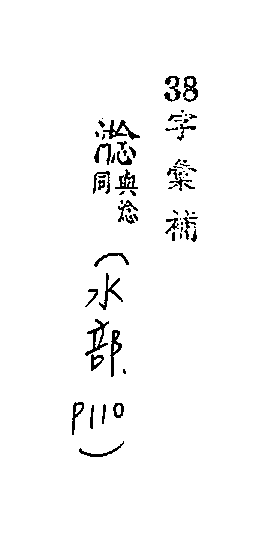 38
字彙補
與淰同
(水部.
P110)